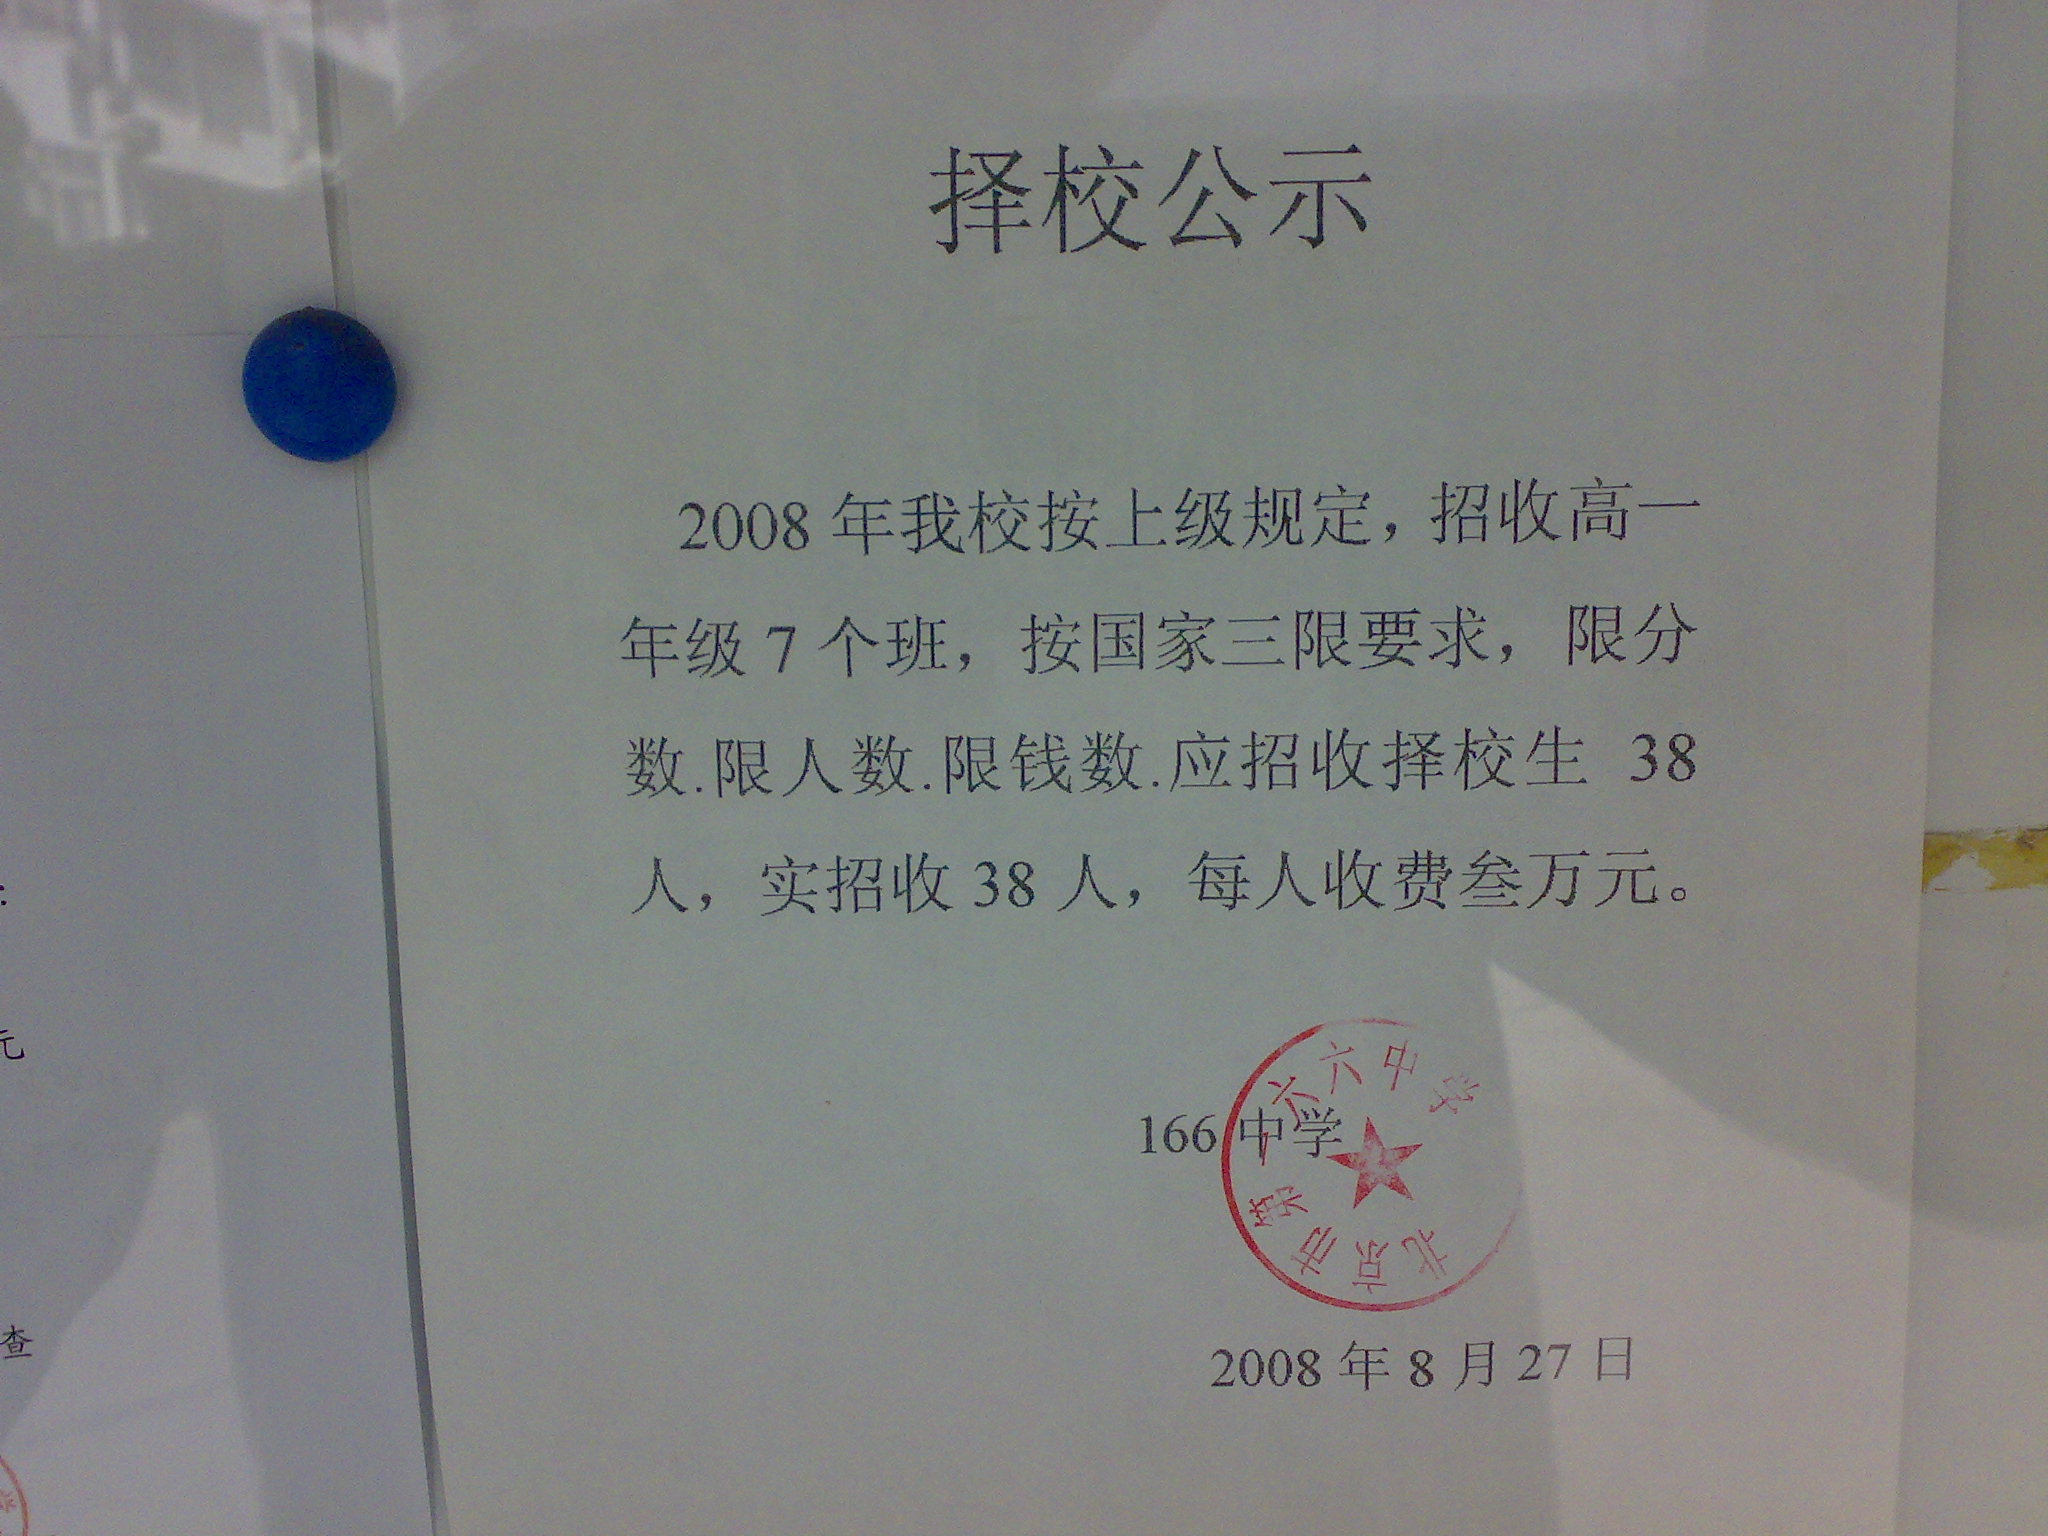 择校公示
2008 年我校按上级规定，招收高一
年级 7 个班，按国家三限要求，限分
数.限人数.限钱数.应招收择校生 38
人，实招收 38 人，每人收费叁万元。
166 中学
北京市第一六六中学
2008 年 8 月 27 日
:
元
查